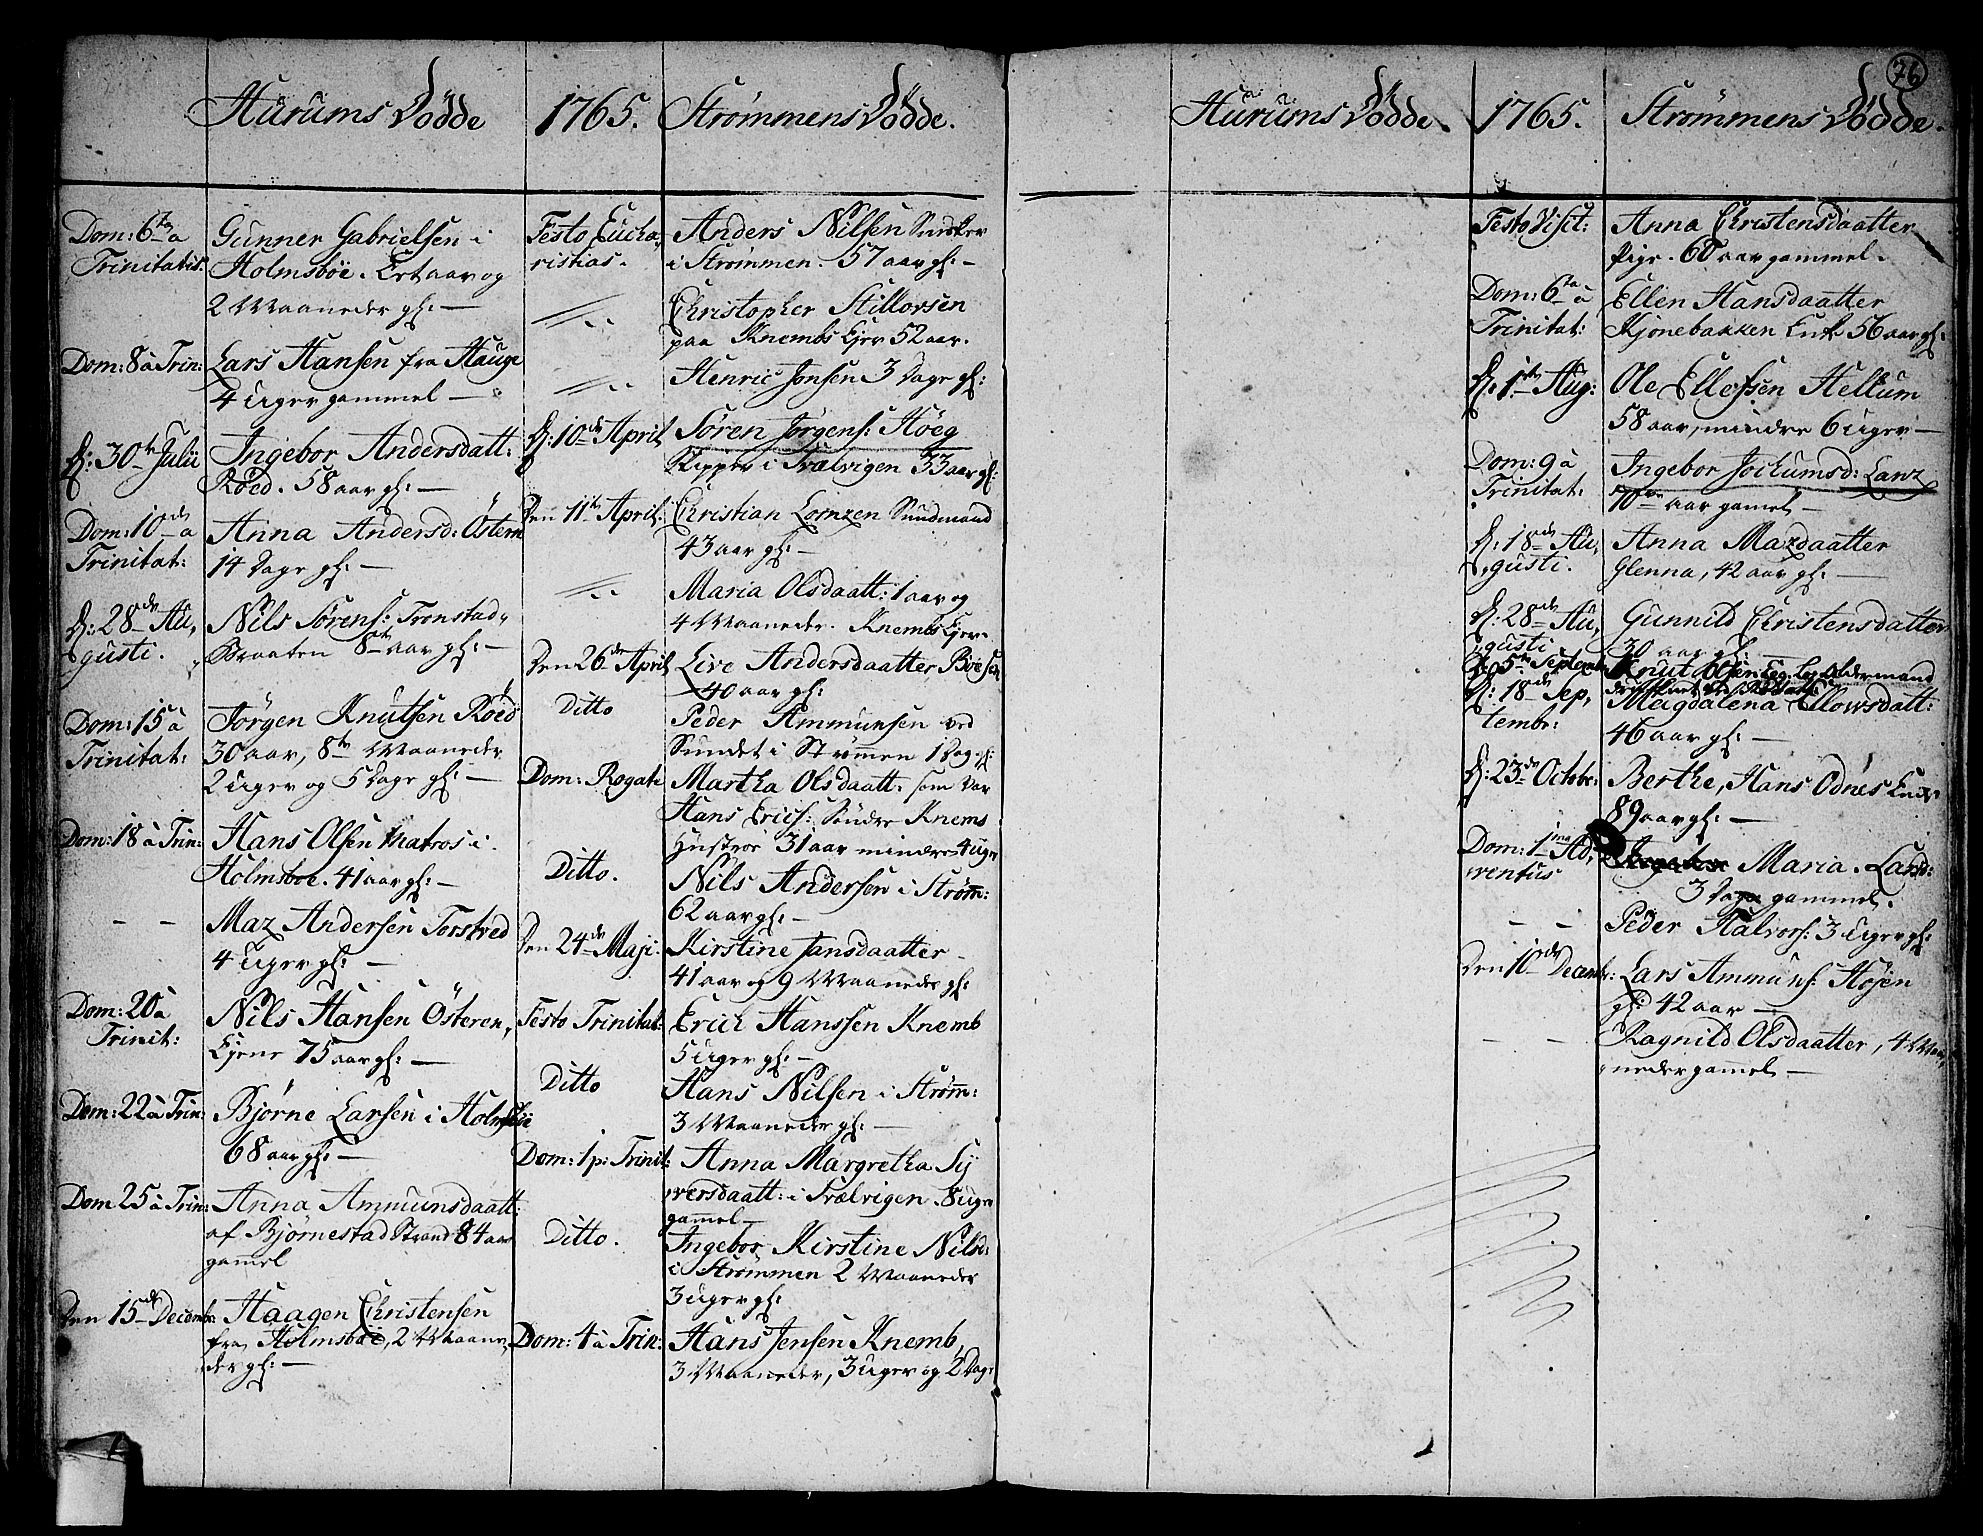 Hurums Dödde
Dom: 6ta a
Trinitatis.
Gunner Gabrielsen i
Holmsböe. Et aar og
2 Maaneder gl: —
Dom: 8 à Trin:
Lars Hansen fra Hauge
4 Uger gammel —
D: 30te Julii
Ingebor Andersdatt:
Röed. 58 aar gl: —
Dom: 10de a
Trinitat:
Anna Andersd: Östern
14 Dage gl: —
D: 28de Au,,
gusti.
Nils Sörens: Tronstad,,
Braaten 8te aar gl: —
Dom: 15 à
Trinitat:
Jörgen Knutsen Röed
30 aar, 8te Maaneder
2 Uger og 5 Dage gl: —
Dom: 18 à Trin:
Hans Olsen Matros i
Holmsboe. 41 aar gl: —
– –
Maz Andersen Torstved
4 Uger gl: —
Dom: 20 à
Trinit:
Nils Hansen Österen,
Ejene 75 aar gl: —
Dom: 22 à Trin:
Bjørne Larsen i Holmsböe
68 aar gl: —
Dom 25 à Trin:
Anna Ammunsdaatt:
af Bjørnestad Strand 84 aar
gamel
Den 15de Decembr
Haagen Christensen
fra Holmsboe, 2 Maane,,
der gl: —
1765. Strømmens Dödde.
Festo Eucha,
ristias.
Anders Nilsen Snedker
i Strømmen. 57 aar gl: —
Christopher Stillorsen
paa Knembs Ejer 52 aar.
Henric Jonsen 3 Dage gl:
D: 10de April
Sören Jörgens: Höeg
Skipper i Trælvigen 33 aar gl:
Den 11te April:
Christian Lornzen Sundmand
43 aar gl: —
Maria Olsdaatt: 1 aar og
4 Maaneder. Knembs Ejer.
Den 26de April
Live Andersdaatter Böesen
40 aar gl:
Ditto
Peder Ammunsen ved
Sundet i Strømmen 1 Dag gl:
Dom: Rogate
Martha Olsdaatt: som var
Hans Erics: Söndre Knems
Hustroe 31 aar mindre 4 Uger
Ditto.
Nils Andersen i Strøm:
62 aar gl: —
Den 24de Maji:
Kirstine Jansdaatter
41 aar og 9 Maaneder gl:
Festo Trinitat:
Erich Hanssen Knemb
5 Uger gl: —
Ditto
Hans Nilsen i Strøm:
3 Maaneder gl: —
Dom: 1 p: Trinit:
Anna Margretha Sy
versdaatt: i Trælvigen 8 Uger
gammel —
Ditto.
Ingebor Kirstine Nilsd:
i Strømmen 2 Maaneder
3 Uger gl:
Dom: 4 à Trin:
Hans Jensen Knemb,
3 Maaneder, 3 Uger og 2 Dag:
76
Hurums Dödde.
1765. Strømmens Dödde.
Festo Visit:
Anna Christensdaatter
Pige. 60 aar gammel.
Dom: 6ta à
Trinitat:
Ellen Hansdaatter
Kjönebakken Enke 56 aar gl:
D: 1te Aug:
Ole Ellefsen Hellum
58 aar, mindre 6 Uger —
Dom: 9 à
Trinitat:
Ingebor Jochumsd: Lanz
70 aar gamel —
D: 18de Au,
gusti.
Anna Mazdaatter
Glenna, 42 aar gl: —
D: 28de Au,
gusti
Gunnild Christensdatter
30 aar gl: —
D: 5te Septembr
Knut
D: 18de Sep,
tembr:
Magdalena Ellowsdatt:
46 aar gl: —
D: 23de Octobr:
Berthe, Hans Odnes Enke
89 aar gl: —
Dom: 1ma Ad,
ventus
Maria. Larsd:
3 Dage gammel.
– –
Peder Halvors: 3 Uger gl:
Den 10de Decembr:
Lars Ammuns: Höjen
gl: 42 aar —
– –
Ragnild Olsdaatter, 4 Maa,
neder gamel —